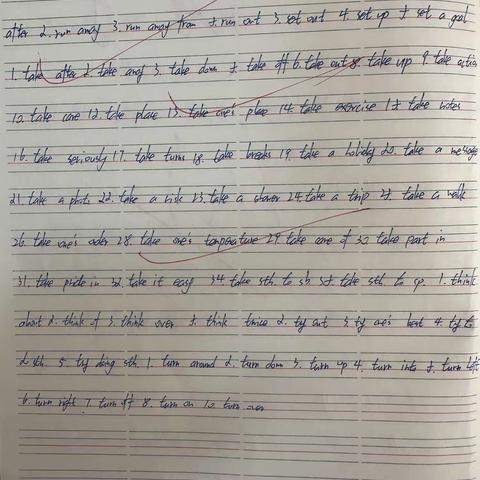 after 2. run away 3. run away from 5. run out 3. set out 4. set up 5 set a goal
1. take after 2. take away 3. take down 5. take off 6. take out 8. take up 9. take action
10. take care 12. take place 13. take one's place 14. take exercise 15 take notes
16. take seriously 17. take turns 18. take breaks 19. take a holiday 20. take a message
21. take a photo 22. take a risk 23. take a shower 24. take a trip 25. take a walk
26. take one's order 28. take one's temperature 29. take care of 30. take part in
31. take pride in 32. take it easy 34. take sth. to sb. 35. take sth. to sp. 1. think
about 2. think of 3. think over 5. think twice 2. try out 3. try one's best 4. try to
do sth. 5. try doing sth 1. turn around 2. turn down 3. turn up 4. turn into 5. turn left
6. turn right 7. turn off 8. turn on 10. turn over